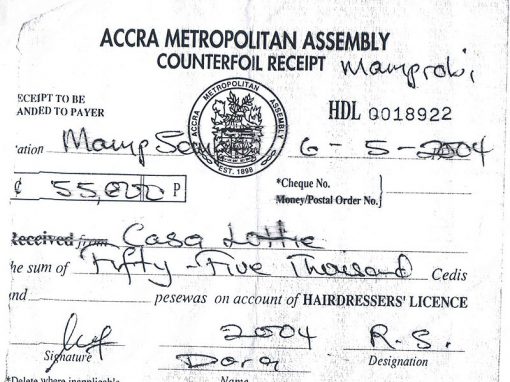 ACCRA METROPOLITAN ASSEMBLY
COUNTERFOIL RECEIPT Mamprobi
ECEIPT TO BE
ANDED TO PAYER
HDL 0018922
ACCRA METROPOLITAN ASSEMBLY
EST. 1898
ation Mamp 6 - 5 - 2004
¢ 55,000 P
*Cheque No.
Money/Postal Order No.
Received from Casa Lottie
he sum of Fifty-Five Thousand Cedis
nd pesewas on account of HAIRDRESSERS' LICENCE
2004 R.S.
Signature Designation
Dora
*Delete where inapplicable Name